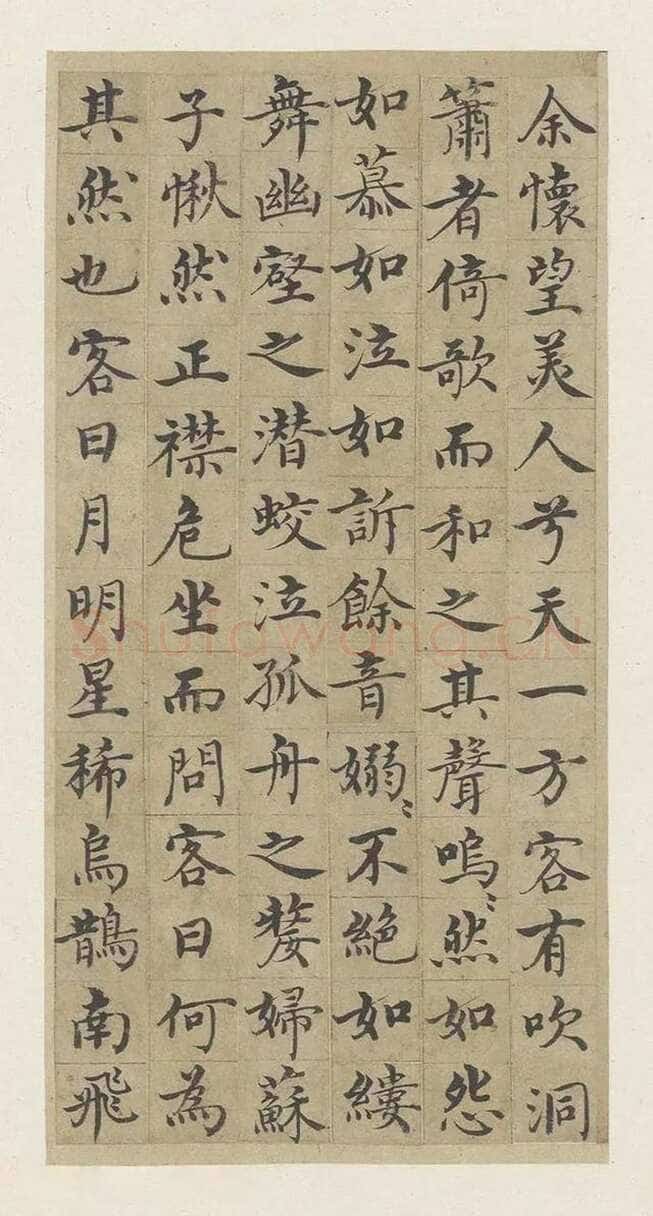 余懷望美人兮天一方客有吹洞
簫者倚歌而和之其聲嗚〻然如怨
如慕如泣如訴餘音嫋〻不絕如縷
舞幽壑之潛蛟泣孤舟之嫠婦蘇
子愀然正襟危坐而問客曰何為
其然也客曰月明星稀烏鵲南飛
shufawang.CN